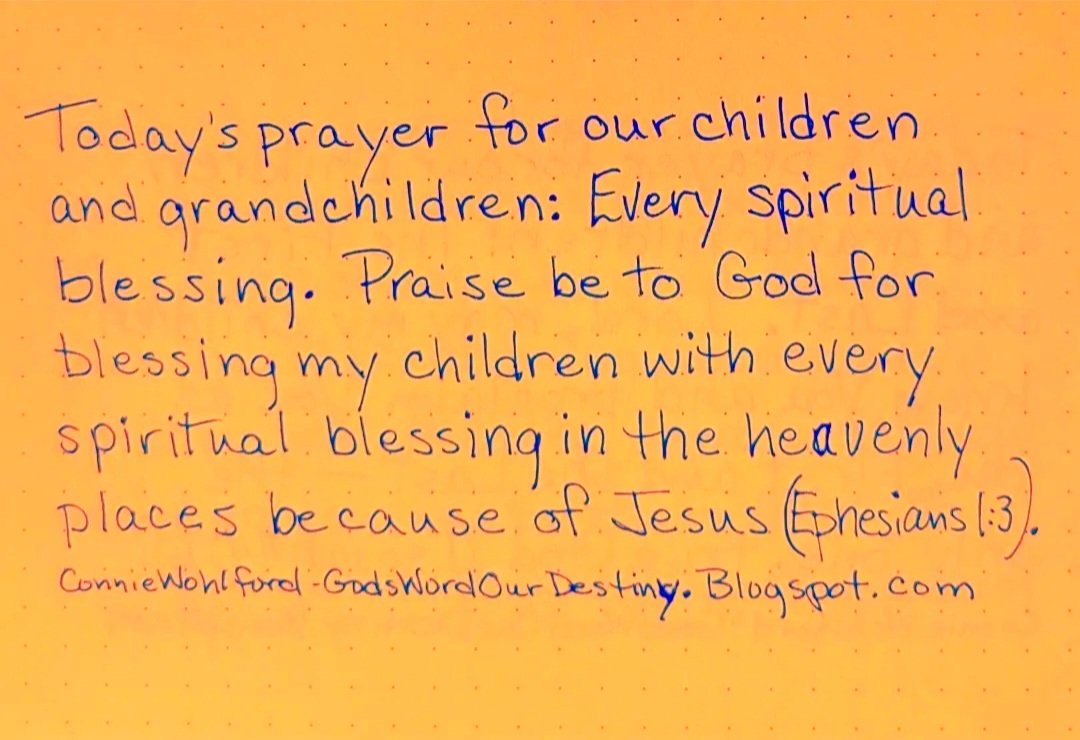 Today's prayer for our children
and grandchildren: Every spiritual
blessing. Praise be to God for
blessing my children with every
spiritual blessing in the heavenly
places because of Jesus (Ephesians 1:3).
ConnieWohlford-GodsWordOurDestiny.Blogspot.com